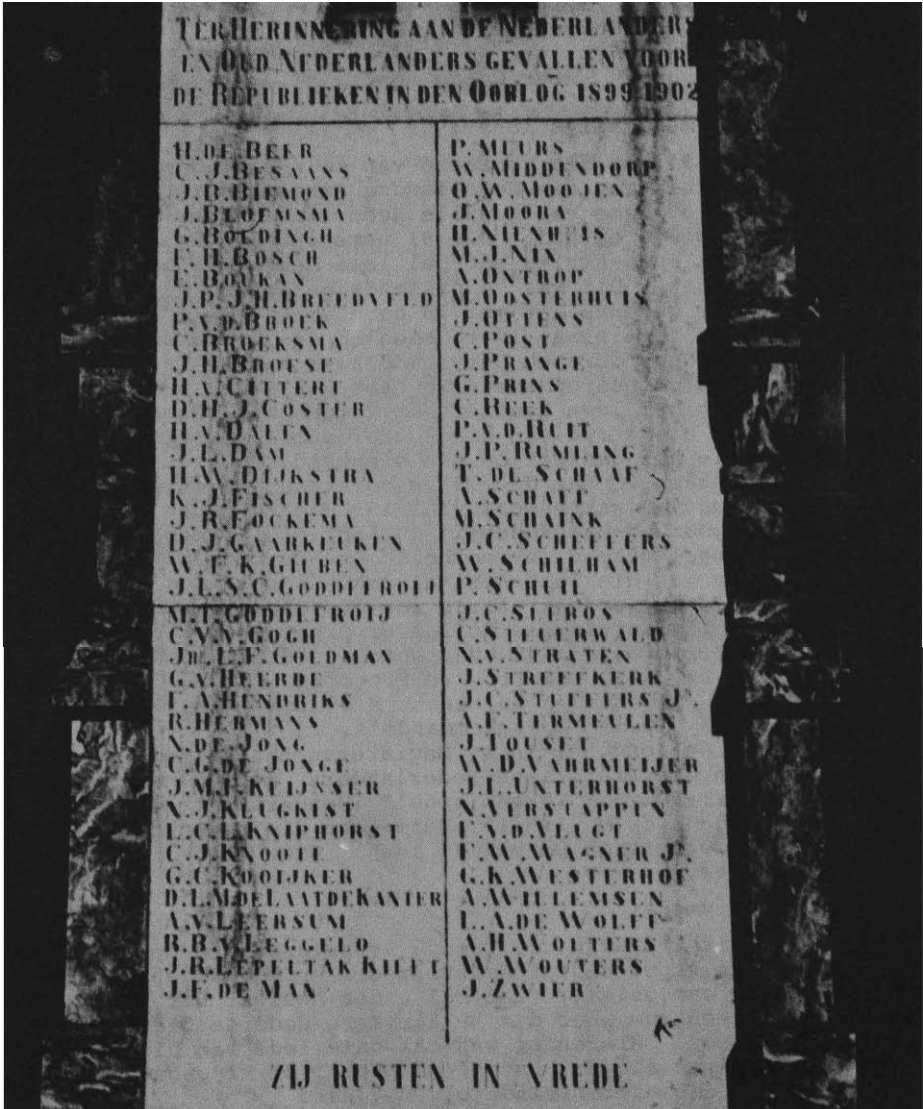 TER HERINNERING AAN DE NEDERLANDERS
EN OUD NEDERLANDERS GEVALLEN VOOR
DE REPUBLIEKEN IN DEN OORLOG 1899-1902
H. DE BEER
C. J. BESAANS
J. B. BIEMOND
J. BLOEMSMA
G. BOLDINGH
F. H. BOSCH
E. BOUKAN
J. P. J. H. BREEDVELD
P. V. D. BROEK
C. BROEKSMA
J. H. BROESE
H. V. CITTERT
D. H. J. COSTER
H. V. DALEN
J. L. DAM
H. W. DIJKSTRA
K. J. FISCHER
J. R. FOCKEMA
D. J. GAARKEUKEN
W. F. K. GIUBEN
J. L. S. C. GODDEFROIJ
M. T. GODDEFROIJ
C. V. V. GOGH
JHR. L. F. GOLDMAN
G. V. HEERDE
F. A. HENDRIKS
R. HERMANS
N. DE JONG
C. G. DE JONGE
J. M. F. KEIJSSER
N. J. KLUGKIST
L. C. L. KNIPHORST
C. J. KNOOTE
G. C. KOOIJKER
D. L. M. DE LAAT DE KANTER
A. V. LEERSUM
R. B. V. LEGGELO
J. R. LEPELTAK KIEFT
J. F. DE MAN
P. MEURS
W. MIDDENDORP
O. W. MOOJEN
J. MOORA
H. NIENHUIS
M. J. NIX
A. ONTROP
M. OOSTERHUIS
J. OTTENS
C. POST
J. PRANGE
G. PRINS
C. REEK
P. V. D. RUIT
J. P. RUMLING
T. DE SCHAAF
A. SCHAFF
M. SCHAINK
J. C. SCHEFFERS
W. SCHILHAM
P. SCHUIL
J. C. SLEBOS
C. STEUERWALD
N. V. STRATEN
J. STREEFKERK
J. C. STUFFERS JR.
A. F. TERMEULEN
J. TOUSET
W. D. VAHRMEIJER
J. L. UNTERHORST
N. VERSTAPPEN
F. V. D. VLUGT
F. W. WAGNER JR.
G. K. WESTERHOF
A. WILLEMSEN
L. A. DE WOLFF
A. H. WOLTERS
W. WOUTERS
J. ZWIER
ZIJ RUSTEN IN VREDE